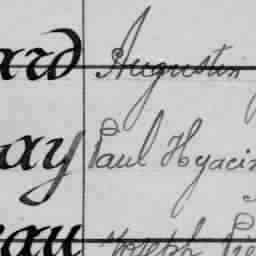 ard Augustin
ay Paul Hyacin
eau Joseph